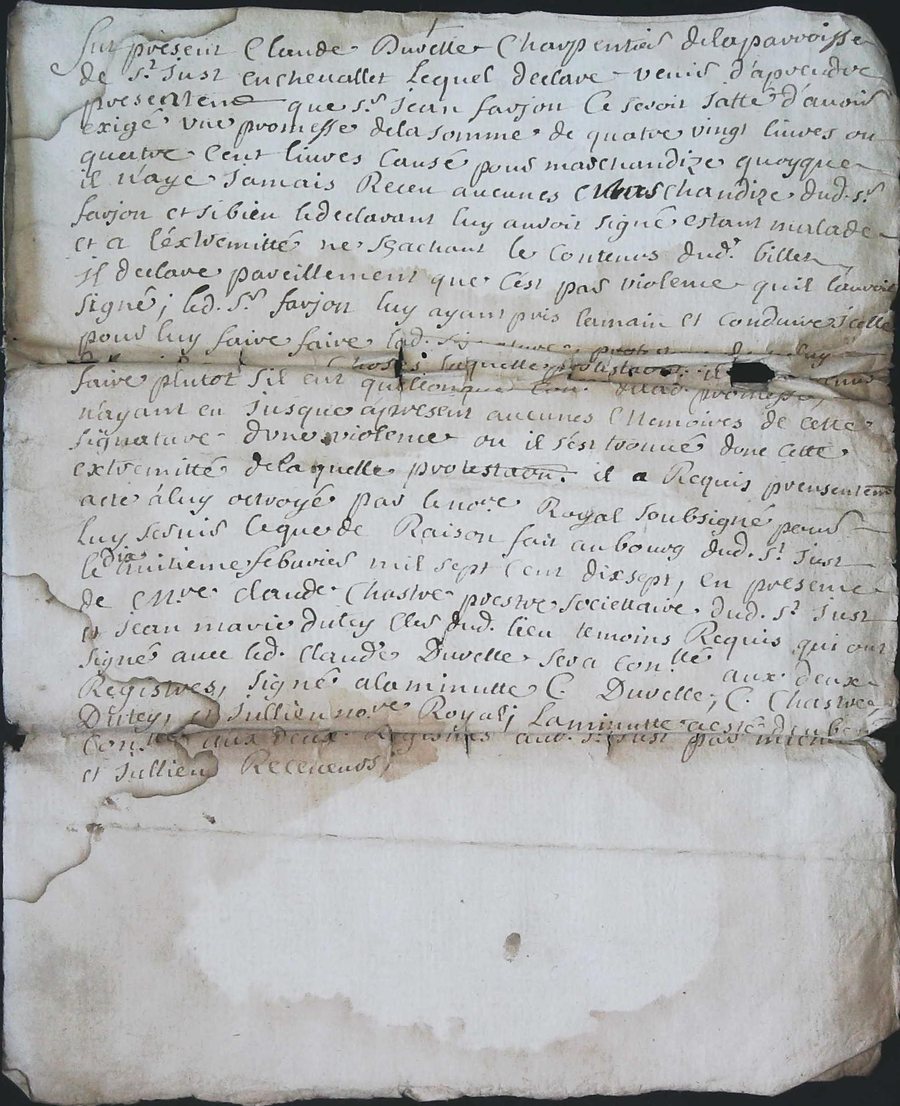 Fut présent Claude Duvette Charpentier dela parroisse
de St. Just en chevallet Lequel declare venir d'aprendre
presentem que Sr. jean farjon ce seroit fatté d'avoir
exigé une promesse dela somme de quatre vingt livres ou
quatre Cent livres Causé pour marchandize quoyque
il n'aye Jamais Receu aucunes marchandize dud. Sr.
farjon et si bien led declarant luy avoir signé estant malade
et a l'éxtremitté ne sçachant le Conteneu dudt. billet
il declare pareillement que C'est par violence quil l'avoit
signé, led. Sr. farjon luy ayant pris lamain et Conduire icelle
pour luy faire faire lad.
laquelle protestant il
faire plutot s'il eut lad. promesse,
n'ayant eu Jusque àpresent aucunes Memoires de cette
signature d'une violence ou il s'est trouvé done cette
extremitté delaquelle protestaon. il a Requis preusentem
acte àluy octroyé par lenore Royal soubsigné pour
luy servir Ceque de Raison fait au bourg dud. St. Just
le Dix huitieme febvrier mil sept Cent dixsept, en presence
de Mre. Claude Chastre prestre societtaire dud. St. Just
et Jean marie dutey Clerc dud. lieu temoins Requis qui ont
signé avec led. Claude Duvette sera Conllé aux deux
Registres, signé alaminutte C. Duvette, C. Chastre
Dutey, et Jullien nore Royal, Laminutte aesté
aux deux Registres aud. St. Just par
et Jullien Receveurs,